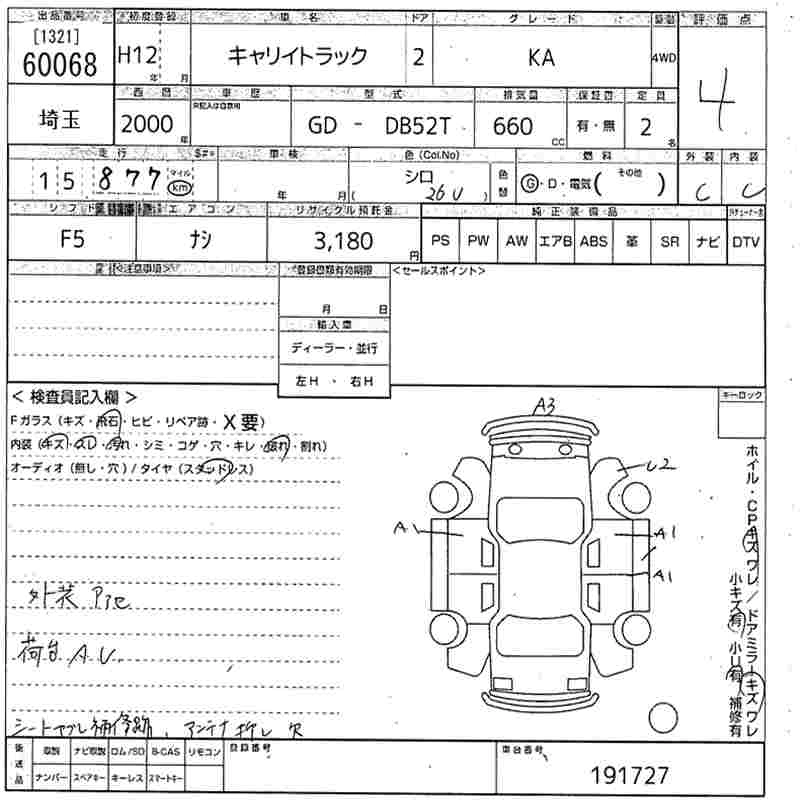 出品番号 初度登録 車名 ドア グレード 評価点
[1321]
60068 H12 年 月 キャリイトラック 2 KA 4WD 4
西暦 車歴 型式 排気量 保証書 定員
埼玉 2000 年 GD - DB52T 660 CC 有・無 2 名
走行 車検 色(Col.No) 燃料 外装 内装
15 877 マイル km 年 月 シロ ( 26U ) 色替 G・D・電気( その他 ) C C
シフト エアコン リサイクル預託金 純正装備品
F5 ナシ 3,180 円 PS PW AW エアB ABS 革 SR ナビ DTV
注意事項 登録書類有効期限 <セールスポイント>
月 日
輸入車
ディーラー・並行
左H ・ 右H
< 検査員記入欄 > キーロック
Fガラス (キズ・飛石・ヒビ・リペア跡・X要)
内装 (キズ・スレ・汚れ・シミ・コゲ・穴・キレ・破れ・割れ)
オーディオ (無し・穴) / タイヤ (スタッドレス)
A3
U2
A1 A1
A1
外装 Pте
荷台 A U
シートヤブレ補修跡、アンテナ押し欠
ホイル・CPキズ ワレ / ドアミラーキズ ワレ
小キズ有 小U有 補修有
後送品 取説 ナビ取説 ロム/SD B-CAS リモコン 登録番号 車台番号
ナンバー スペアキー キーレス スマートキー 191727